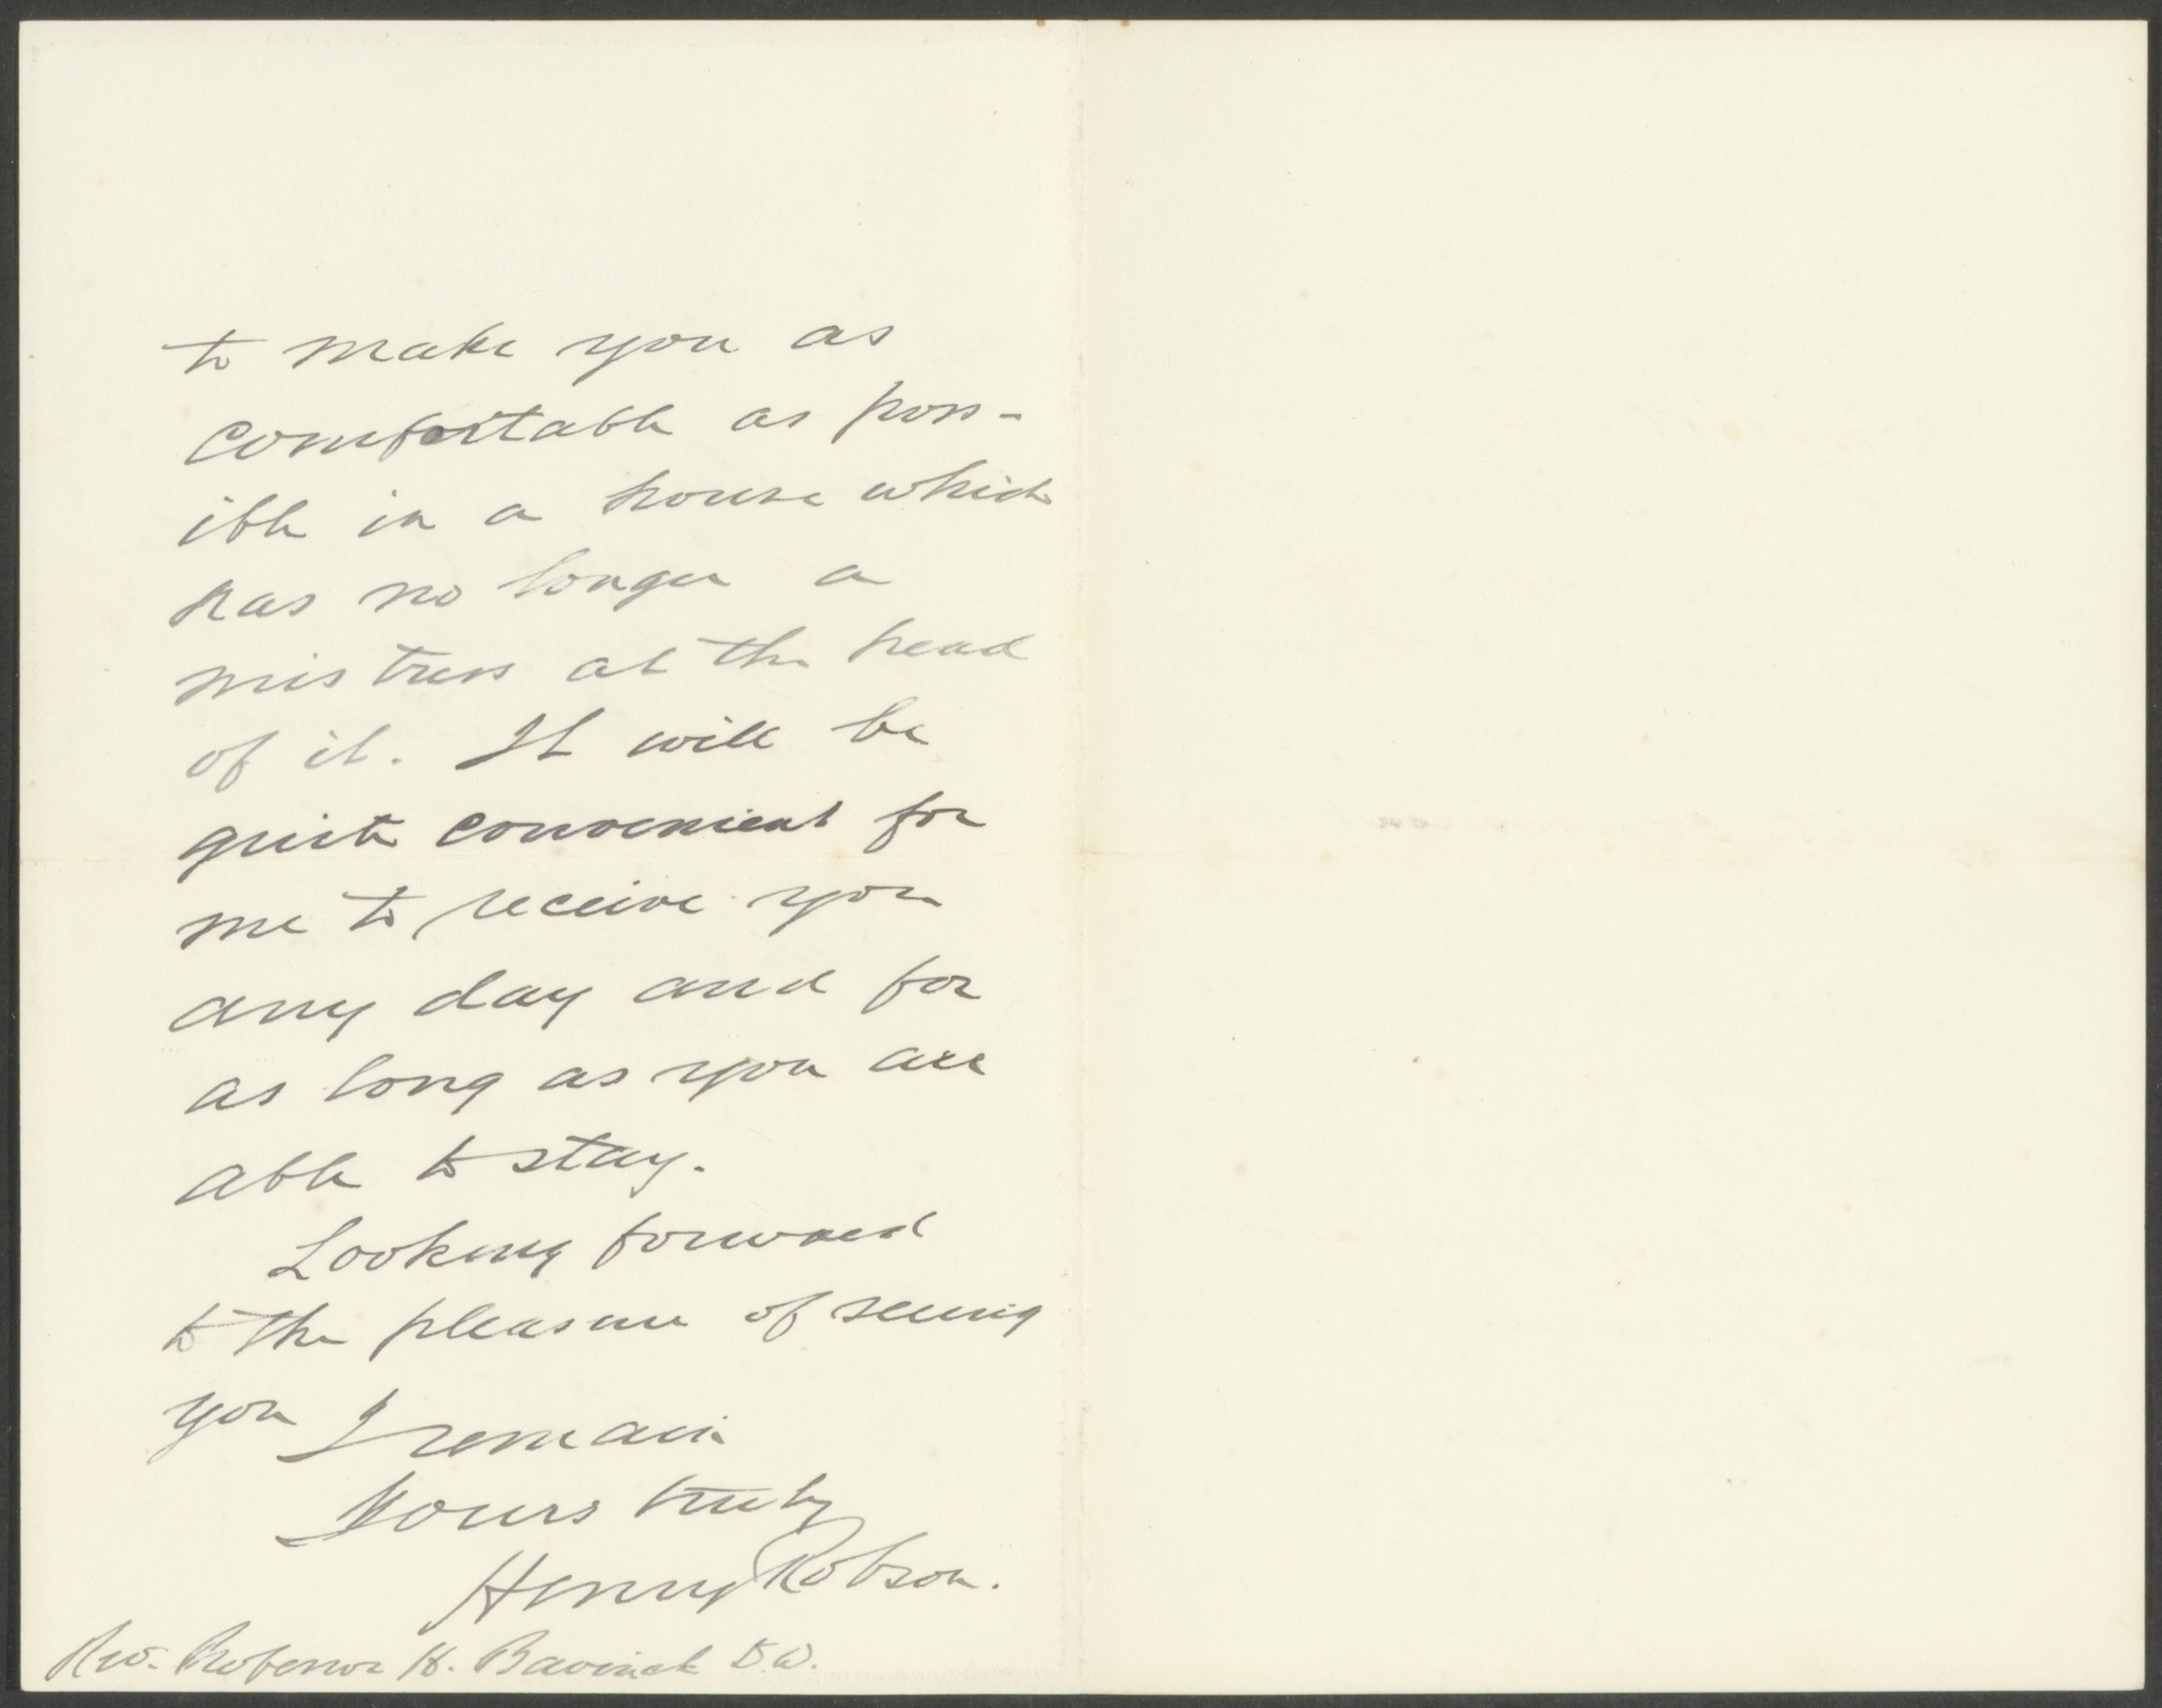 to make you as
comfortable as poss-
ible in a house which
has no longer a
mistress at the head
of it. It will be
quite convenient for
me to receive you
any day and for
as long as you are
able to stay.
Looking forward
to the pleasure of seeing
you I remain
Yours truly
Henry Robson.
Rev. Professor H. Bavinck D.D.